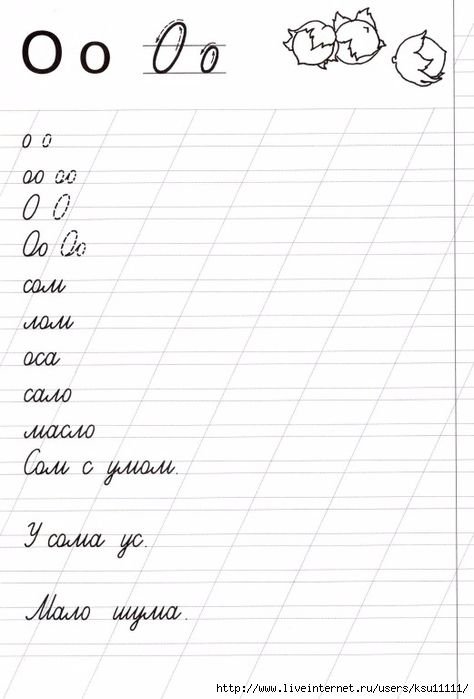 О о О о
о о
оо оо
О О
Оо Оо
сом
лом
оса
сало
масло
Сом с умом.
У сома ус.
Мало шума.
http://www.liveinternet.ru/users/ksu11111/